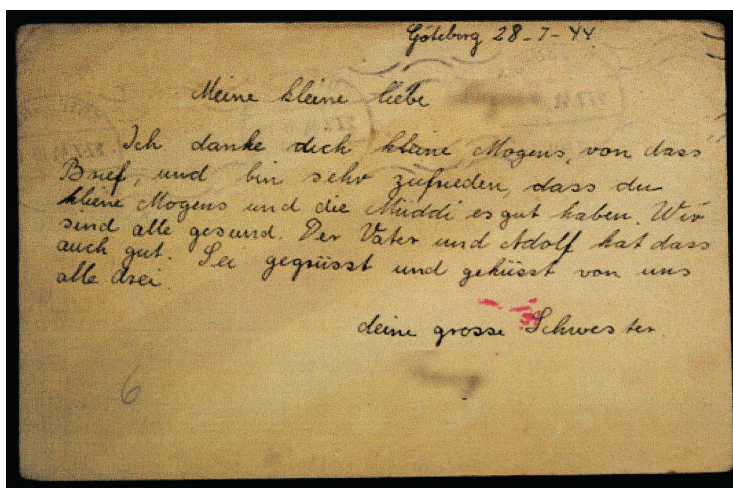 Göteborg 28-7-44
Meine kleine liebe
Ich danke dich kleine Mogens, von dass
Brief, und bin sehr zufrieden, dass du
kleine Mogens und die Muddi es gut haben. Wir
sind alle gesund. Der Vater und Adolf hat dass
auch gut. Sei gegrüsst und geküsst von uns
alle drei.
deine grosse Schwester.
6